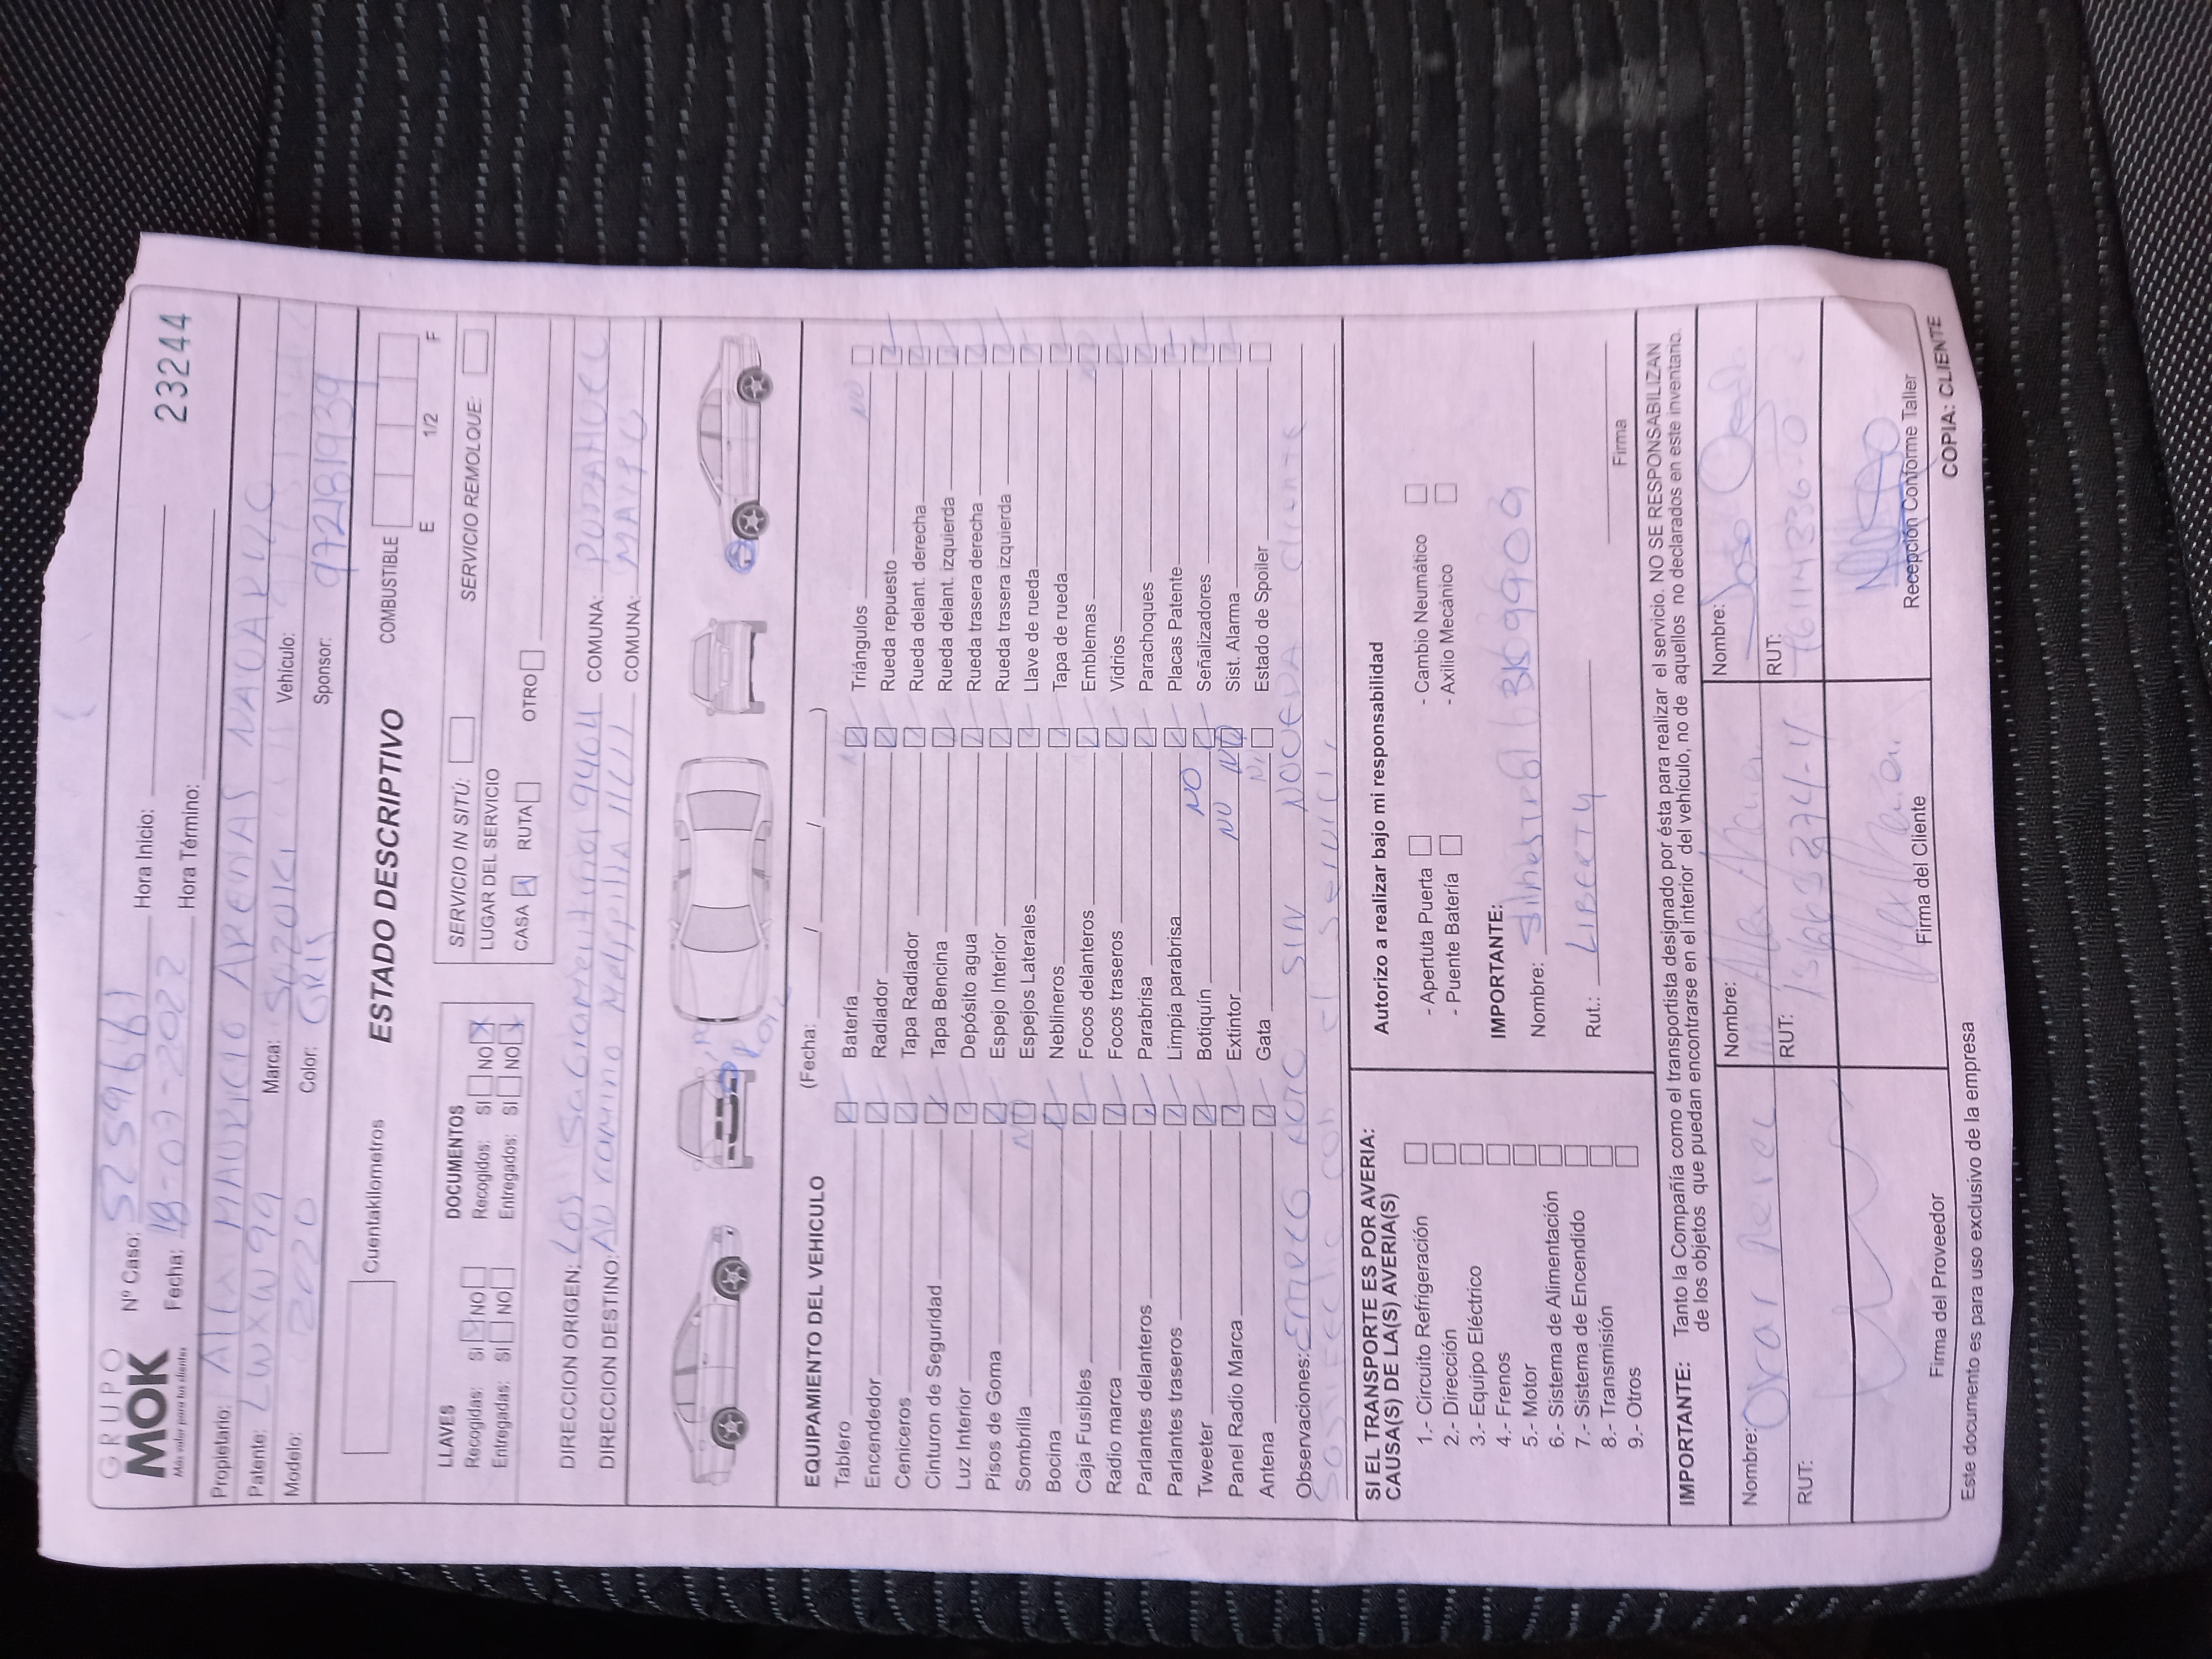 GRUPO
MOK
Más valor para tus clientes
Nº Caso: 5259661 Hora Inicio:
23244
Fecha: 18-07-2022 Hora Término:
Propietario: Alex MAURICIO ARENAS
Patente: LWXW99 Marca: SUZUKI Vehículo:
Modelo: 2020 Color: GRIS Sponsor: 97281939
Cuentakilometros
ESTADO DESCRIPTIVO
COMBUSTIBLE
E 1/2 F
LLAVES
Recogidas: SI NO
Entregadas: SI NO
DOCUMENTOS
Recogidos: SI NO X
Entregados: SI NO X
SERVICIO IN SITÚ: SERVICIO REMOLQUE:
LUGAR DEL SERVICIO
CASA RUTA OTRO
DIRECCION ORIGEN: LOS 9404 COMUNA: PUDAHUEL
DIRECCION DESTINO: AV camino Melipilla COMUNA: MAIPU
EQUIPAMIENTO DEL VEHICULO (Fecha: / / )
Tablero Batería Triángulos NO
Encendedor Radiador Rueda repuesto
Ceniceros Tapa Radiador Rueda delant. derecha
Cinturon de Seguridad Tapa Bencina Rueda delant. izquierda
Luz Interior Depósito agua Rueda trasera derecha
Pisos de Goma Espejo Interior Rueda trasera izquierda
Sombrilla NO Espejos Laterales Llave de rueda
Bocina Neblineros Tapa de rueda
Caja Fusibles Focos delanteros Emblemas
Radio marca Focos traseros Vidrios
Parlantes delanteros Parabrisa Parachoques
Parlantes traseros Limpia parabrisa Placas Patente
Tweeter Botiquín NO Señalizadores
Panel Radio Marca Extintor NO Sist. Alarma
Antena Gata Estado de Spoiler
Observaciones: ENTREGO AUTO SIN NOVEDA cliente
con el servicio
SI EL TRANSPORTE ES POR AVERIA:
CAUSA(S) DE LA(S) AVERIA(S)
1.- Circuito Refrigeración
2.- Dirección
3.- Equipo Eléctrico
4.- Frenos
5.- Motor
6.- Sistema de Alimentación
7.- Sistema de Encendido
8.- Transmisión
9.- Otros
Autorizo a realizar bajo mi responsabilidad
- Apertuta Puerta - Cambio Neumático
- Puente Batería - Axilio Mecánico
IMPORTANTE:
Nombre:
Rut.: LIBERTY
Firma
IMPORTANTE: Tanto la Compañía como el transportista designado por ésta para realizar el servicio. NO SE RESPONSABILIZAN
de los objetos que puedan encontrarse en el interior del vehículo, no de aquellos no declarados en este inventario.
Nombre: Nombre: Nombre: Jose
RUT: RUT: RUT:
Firma del Proveedor Firma del Cliente Recepción Conforme Taller
Este documento es para uso exclusivo de la empresa
COPIA: CLIENTE